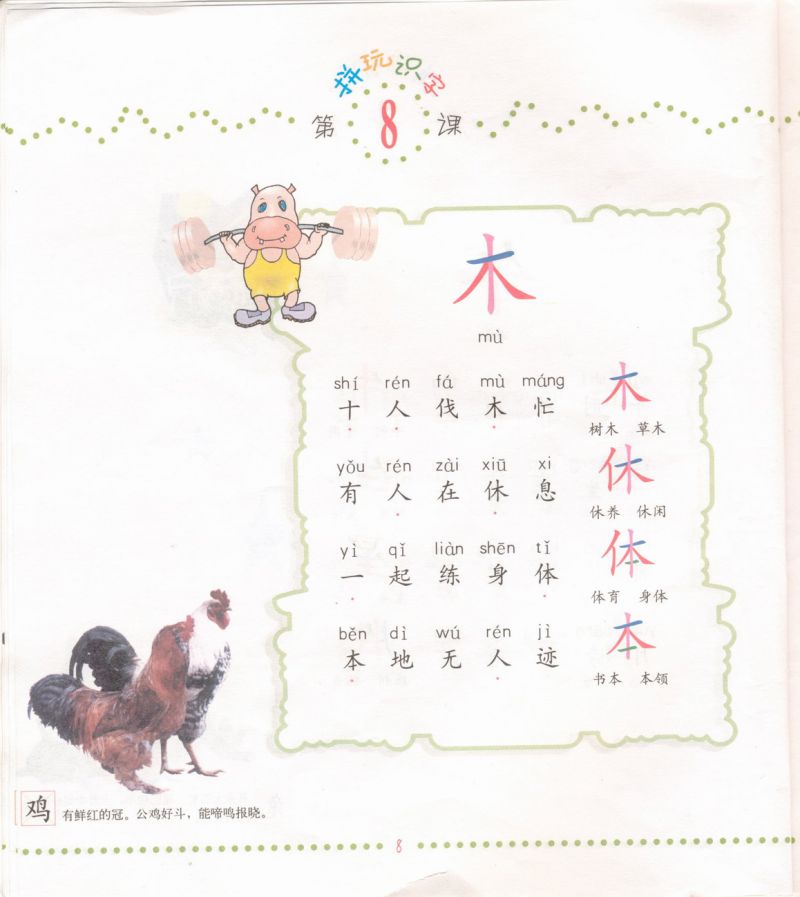 拼玩识字
第 8 课
木
mù
shí rén fá mù máng
十 人 伐 木 忙
yǒu rén zài xiū xi
有 人 在 休 息
yì qǐ liàn shēn tǐ
一 起 练 身 体
běn dì wú rén jì
本 地 无 人 迹
木
树木 草木
休
休养 休闲
体
体育 身体
本
书本 本领
鸡 有鲜红的冠。公鸡好斗，能啼鸣报晓。
8